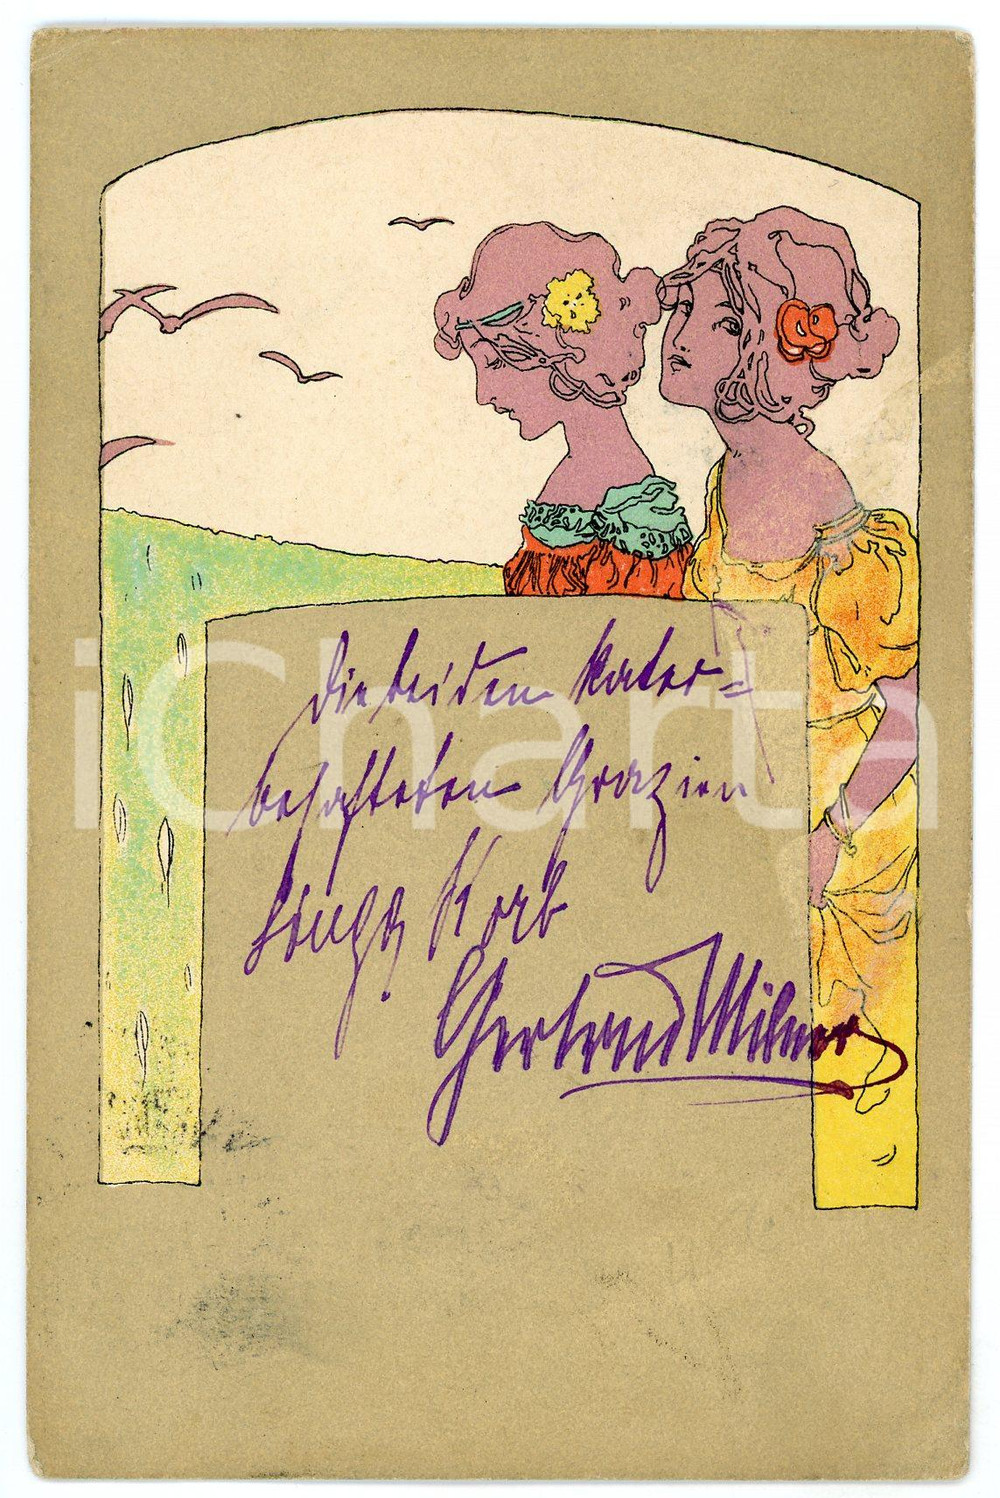 Die beiden kater=
behafteten Grazien
Korb
Gertrud Milner
iCharta